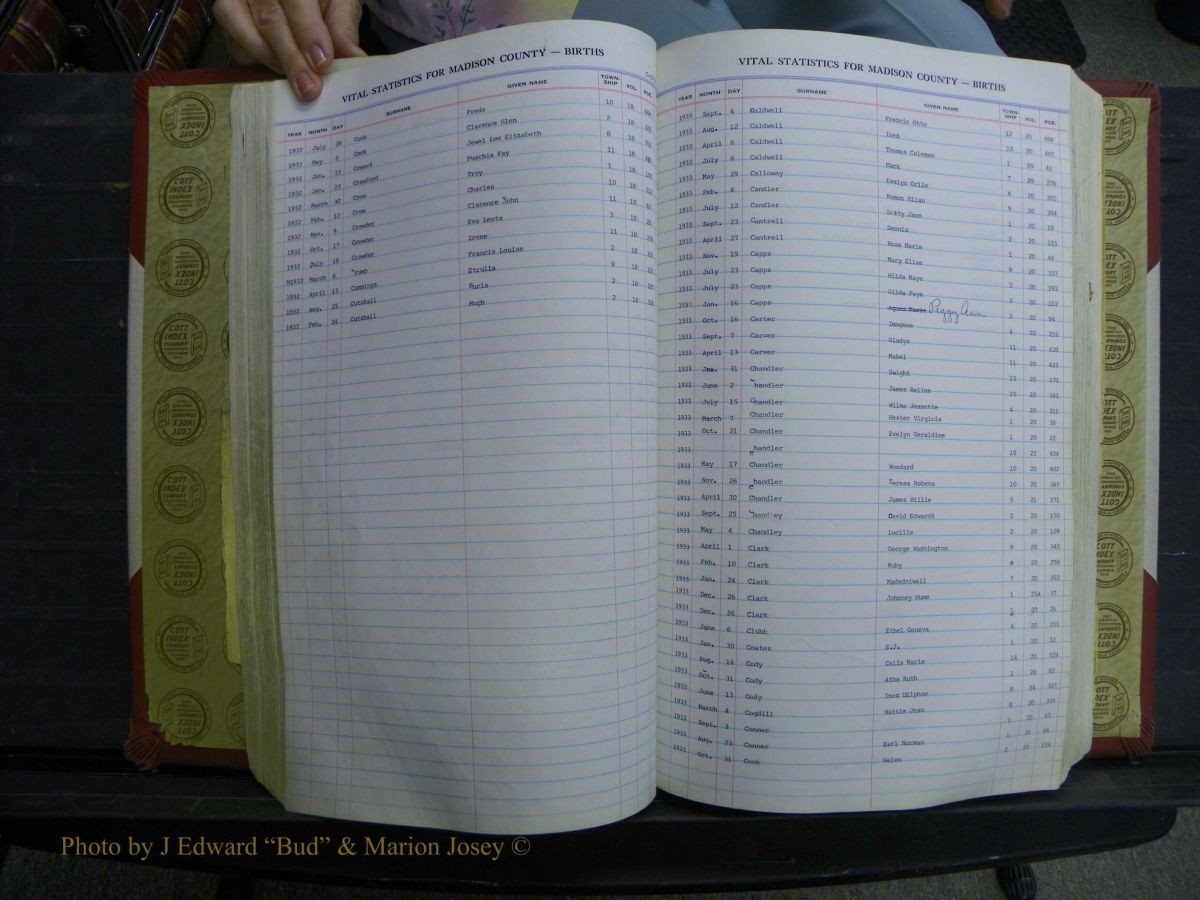 VITAL STATISTICS FOR MADISON COUNTY — BIRTHS
YEAR MONTH DAY SURNAME GIVEN NAME TOWN-SHIP VOL. PGE.
1932 July 28 Cook Freda 10 18
1932 May 2 Cook Clarence Glen 2 18
1932 Jan. 13 Coward Jewel Lee Elizabeth 8 18
1932 Jan. 25 Crawford Fuschia Fay 11 18
1932 March 30 Crow Troy 1 18
1932 Feb. 12 Crow Charles 10 18
1932 Nov. 9 Crowder Clarence John 11 19
1932 Oct. 17 Crowder Eva Leota 3 19
1932 July 18 Crowder Irene 11 18
N1932 March 6 Crumb Francis Louise 2 18
1932 April 13 Cummings Etrulia 9 18
1932 Aug. 25 Cutshall Burla 2 18
1932 Feb. 24 Cutshall Hugh 2 18
VITAL STATISTICS FOR MADISON COUNTY — BIRTHS
YEAR MONTH DAY SURNAME GIVEN NAME TOWN-SHIP VOL. PGE.
1933 Sept. 4 Caldwell Fredric Otto 12 20 498
1933 Aug. 12 Caldwell Inez 12 20 487
1933 April 6 Caldwell Thomas Coleman 1 20 43
1933 July 6 Caldwell Mack 7 20 278
1933 May 29 Calloway Evelyn Orlie 4 20 201
1933 Feb. 4 Candler Ramon Milan 9 20 364
1933 July 12 Candler Dotty Jane 1 20 19
1933 Sept. 23 Cantrell Dennis 2 20 153
1933 April 27 Cantrell Rose Marie 1 20 46
1933 Nov. 19 Capps Mary Elise 9 20 357
1933 July 23 Capps Hilda Maye 3 20 193
1933 July 23 Capps Gilda Faye 3 20 192
1933 Jan. 16 Capps Agnes Marie Peggy Ann 2 20 94
1933 Oct. 16 Carter Imogene 4 20 216
1933 Sept. 7 Carver Gladys 11 20 438
1933 April 13 Carver Mabel 11 20 435
1933 Jan. 31 Chandler Dwight 15 20 570
1933 June 2 Chandler James Baline 15 20 563
1933 July 15 Chandler Wilma Jeanette 4 20 211
1933 March 7 Chandler Hester Virginia 1 20 38
1933 Oct. 21 Chandler Evelyn Geraldine 1 20 22
1933 Chandler 10 22 404
1933 May 17 Chandler Woodard 10 20 402
1933 Nov. 26 Chandler Teresa Robena 10 20 383
1933 April 30 Chandler James Billie 5 21 271
1933 Sept. 25 Chandley David Edwards 2 20 130
1933 May 4 Chandley Lucille 2 20 128
1933 April 1 Clark George Washington 9 20 345
1933 Feb. 10 Clark Ruby 8 20 298
1933 Jan. 24 Clark Madedniwall 7 20 262
1933 Dec. 26 Clark Johnney Hume 1 25A 37
1933 Dec. 26 Clark 1 20 24
1933 June 6 Clubb Ethel Geneva 6 20 253
1933 Jan. 30 Coates E.J. 1 20 32
1933 Aug. 14 Cody Celia Marie 14 20 529
1933 Oct. 31 Cody Atha Ruth 1 20 62
1933 June 13 Cody Inez DElphne 9 24 367
1933 March 4 Cogdill Hattie Jean 8 20 336
1933 Sept. 3 Conner 1 20 67
1933 Aug. 21 Conner Earl Norman 1 20 66
1933 Oct. 31 Cook Helen 2 20 154
COTT INDEX COMPANY
Photo by J Edward “Bud” & Marion Josey ©